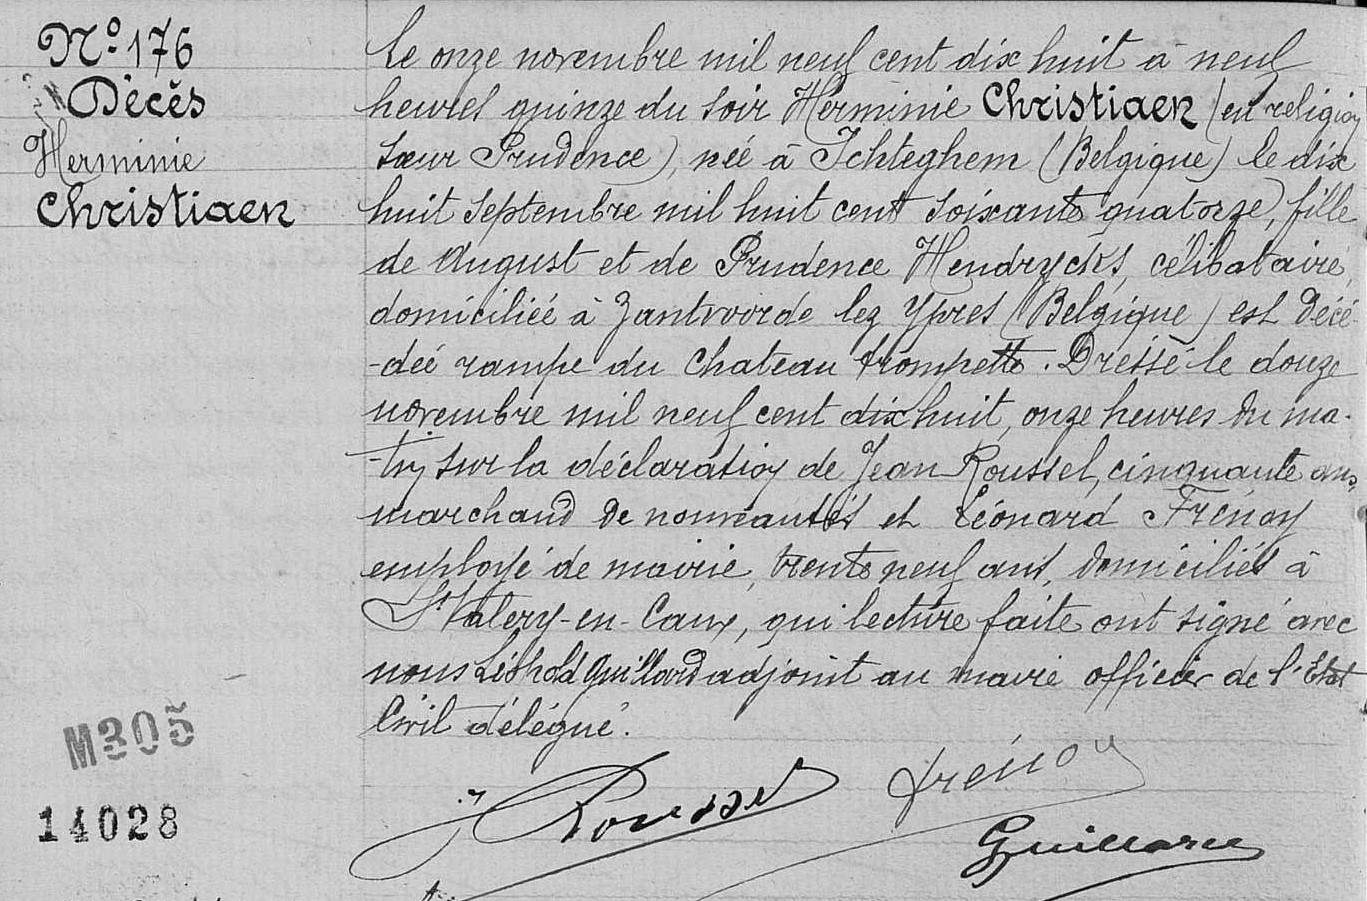 Nº 176
Décès
Herminie
Christiaen
Le onze novembre mil neuf cent dix huit à neuf
heures quinze du soir Herminie Christiaen (en religion
sœur Prudence), née à Ichteghem (Belgique) le dix
huit septembre mil huit cent soixante quatorze, fille
de August et de Prudence Hendryckx, célibataire,
domiciliée à Zantvoorde lez Ypres (Belgique) est décé-
-dée rampe du Chateau trompette. Dressé le douze
novembre mil neuf cent dix huit, onze heures du ma-
-tin sur la déclaration de Jean Roussel, cinquante ans,
marchand de nouveautés et Léonard Frénoy
employé de mairie, trente neuf ans, domiciliés à
St Valery-en-Caux, qui lecture faite ont signé avec
nous Léopold Guillard adjoint au maire officier de l'Etat
Civil délégué.
M305
14028
J Roussel
Frénoy
Guillard